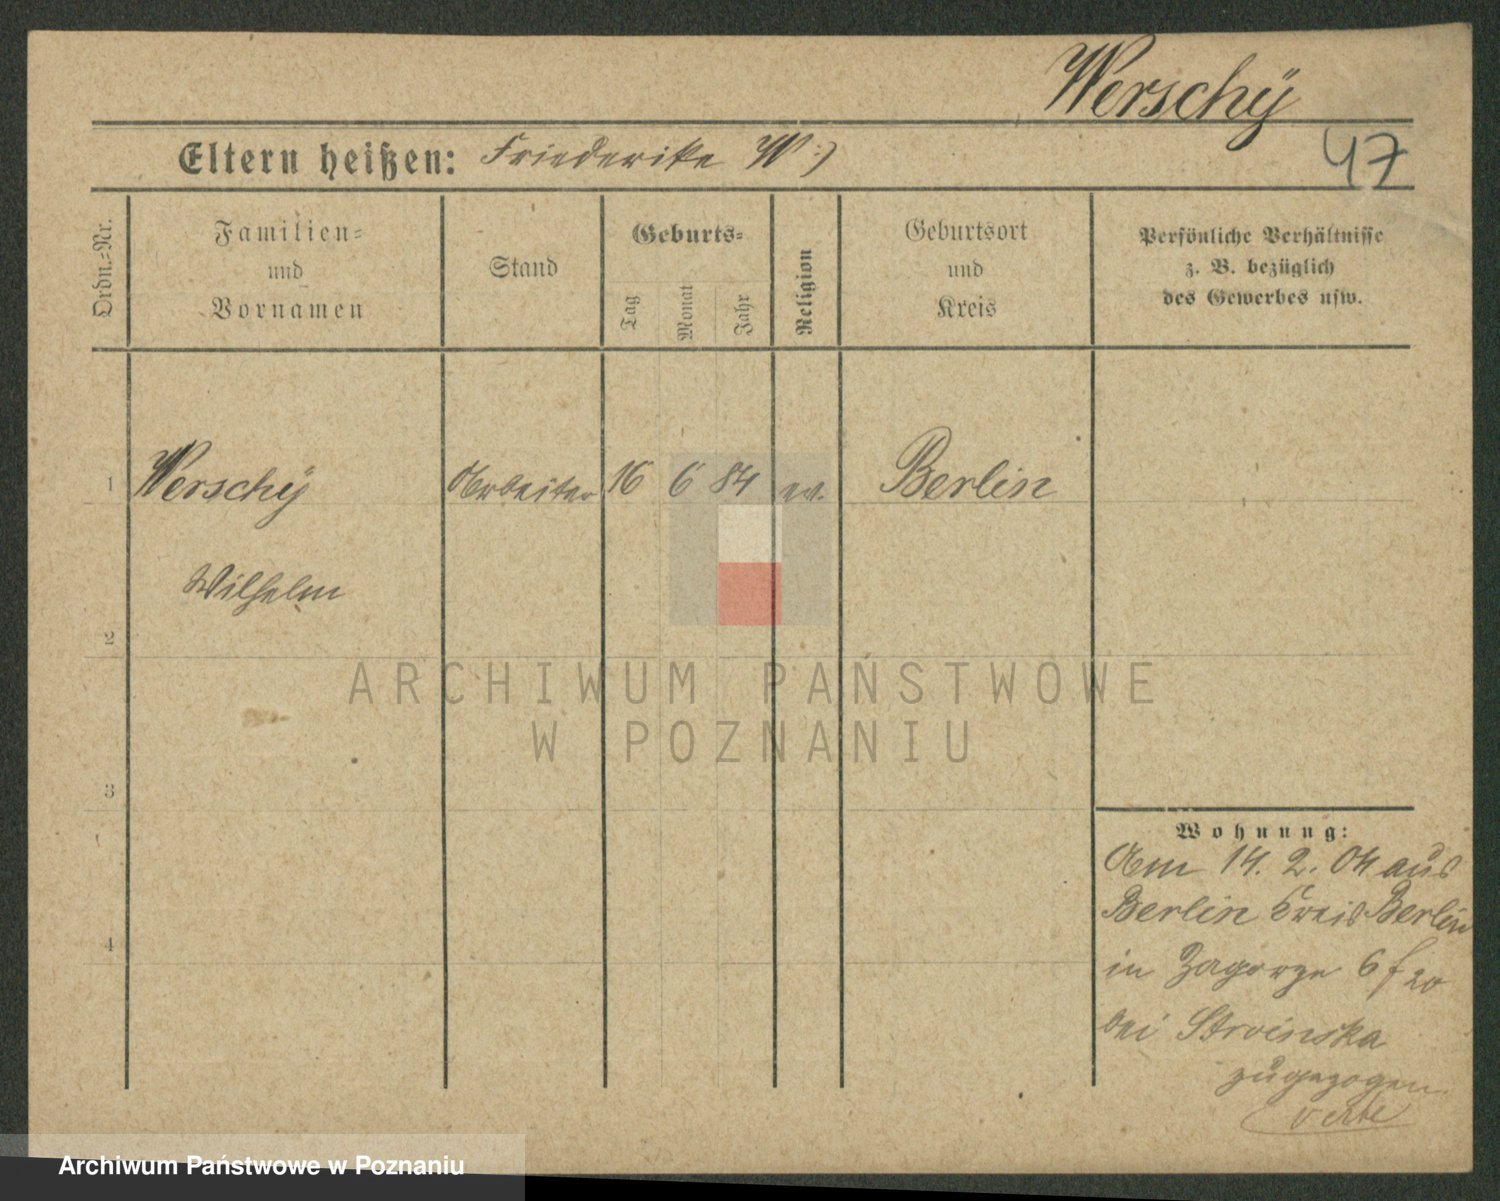 Werschÿ
47
Eltern heißen: Friederike W:)
Ordn.-Nr.
Familien-
und
Vornamen
Stand
Geburts-
Tag
Monat
Jahr
Religion
Geburtsort
und
Kreis
Persönliche Verhältnisse
z. B. bezüglich
des Gewerbes usw.
1 Werschÿ Arbeiter 16 6 84 ev. Berlin
Wilhelm
2
3
4
Wohnung:
Am 14. 2. 04 aus
Berlin Kreis Berlin
in Zagorze 6 f 20
bei Stroinska
zugezogen
verte
ARCHIWUM PAŃSTWOWE
W POZNANIU
Archiwum Państwowe w Poznaniu